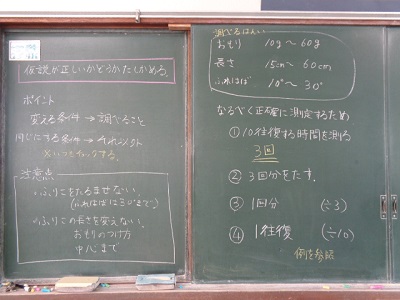 仮説が正しいかどうかたしかめる。
ポイント
変える条件 → 調べること
同じにする条件 → それ以外
※いつもチェックする。
注意点
・ふりこをたるませない。
(ふれはばは30°まで)
・ふりこの長さを変えない。
おもりのつけ方
中心まで
調べるはんい
おもり 10g～60g
長さ 15cm～60cm
ふれはば 10°～30°
なるべく正確に測定するため
①10往復する時間を測る
3回
② 3回分をたす。
③ 1回分 (÷3)
④ 1往復 (÷10)
例を参照